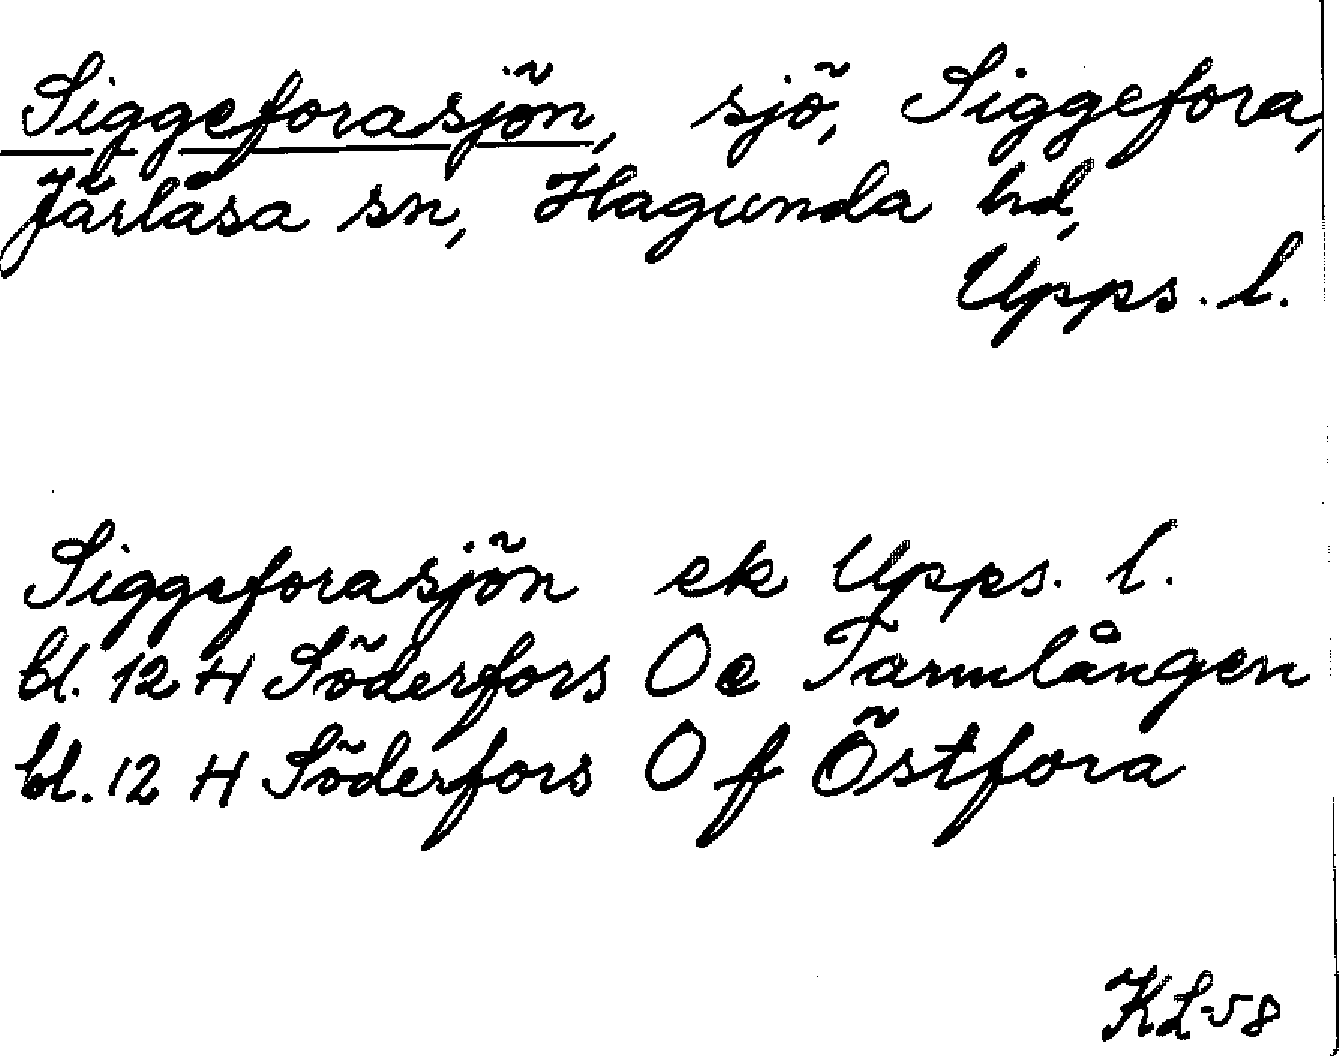 Siggeforasjön, sjö, Siggefora,
Järlåsa sn, Hagunda hd,
Upps. l.
Siggeforasjön ek Upps. l.
bl. 12 H Söderfors O e Tarmlången
bl. 12 H Söderfors O f Östfora
KL-58